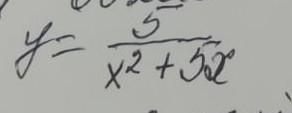 y = 5 / (x² + 5x)